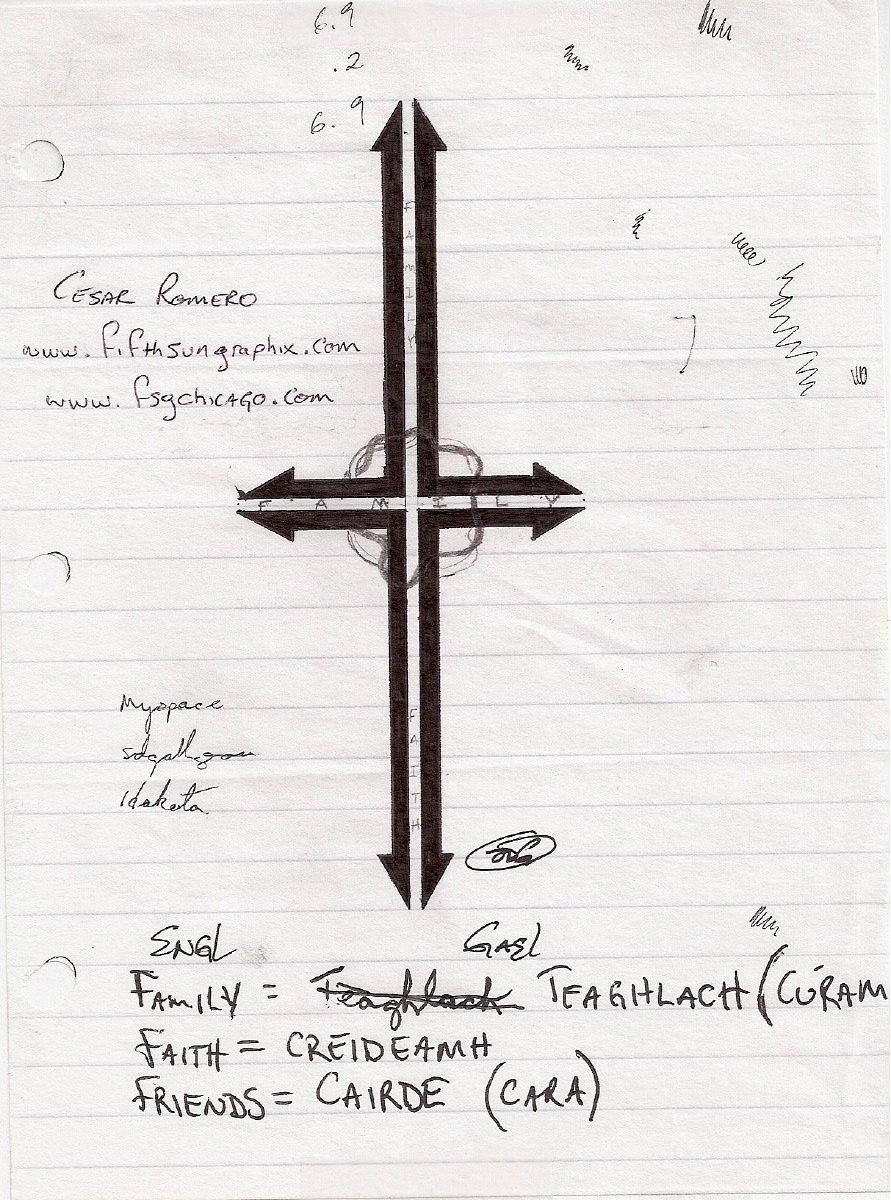 6.9
.2
6.9
FAMILY
CESAR ROMERO
www.fifthsungraphix.com
www.fsgchicago.com
FAMILY
Myspace
FAITH
ENGL GAEL
FAMILY = Teaghlach TEAGHLACH (CÚRAM
FAITH = CREIDEAMH
FRIENDS = CAIRDE (CARA)